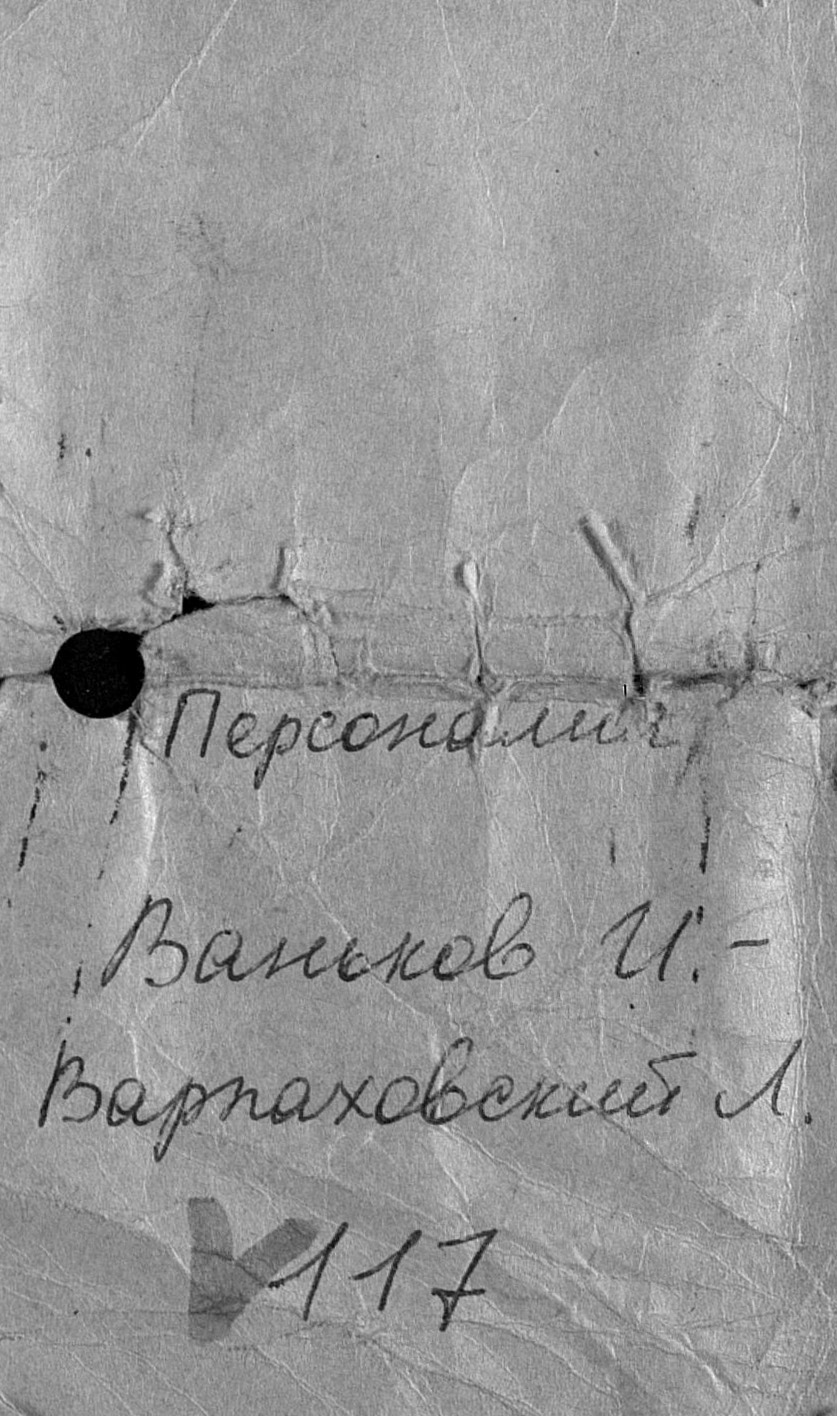 Персоналия
Ваньков И. -
Варпаховский Л.
V 117